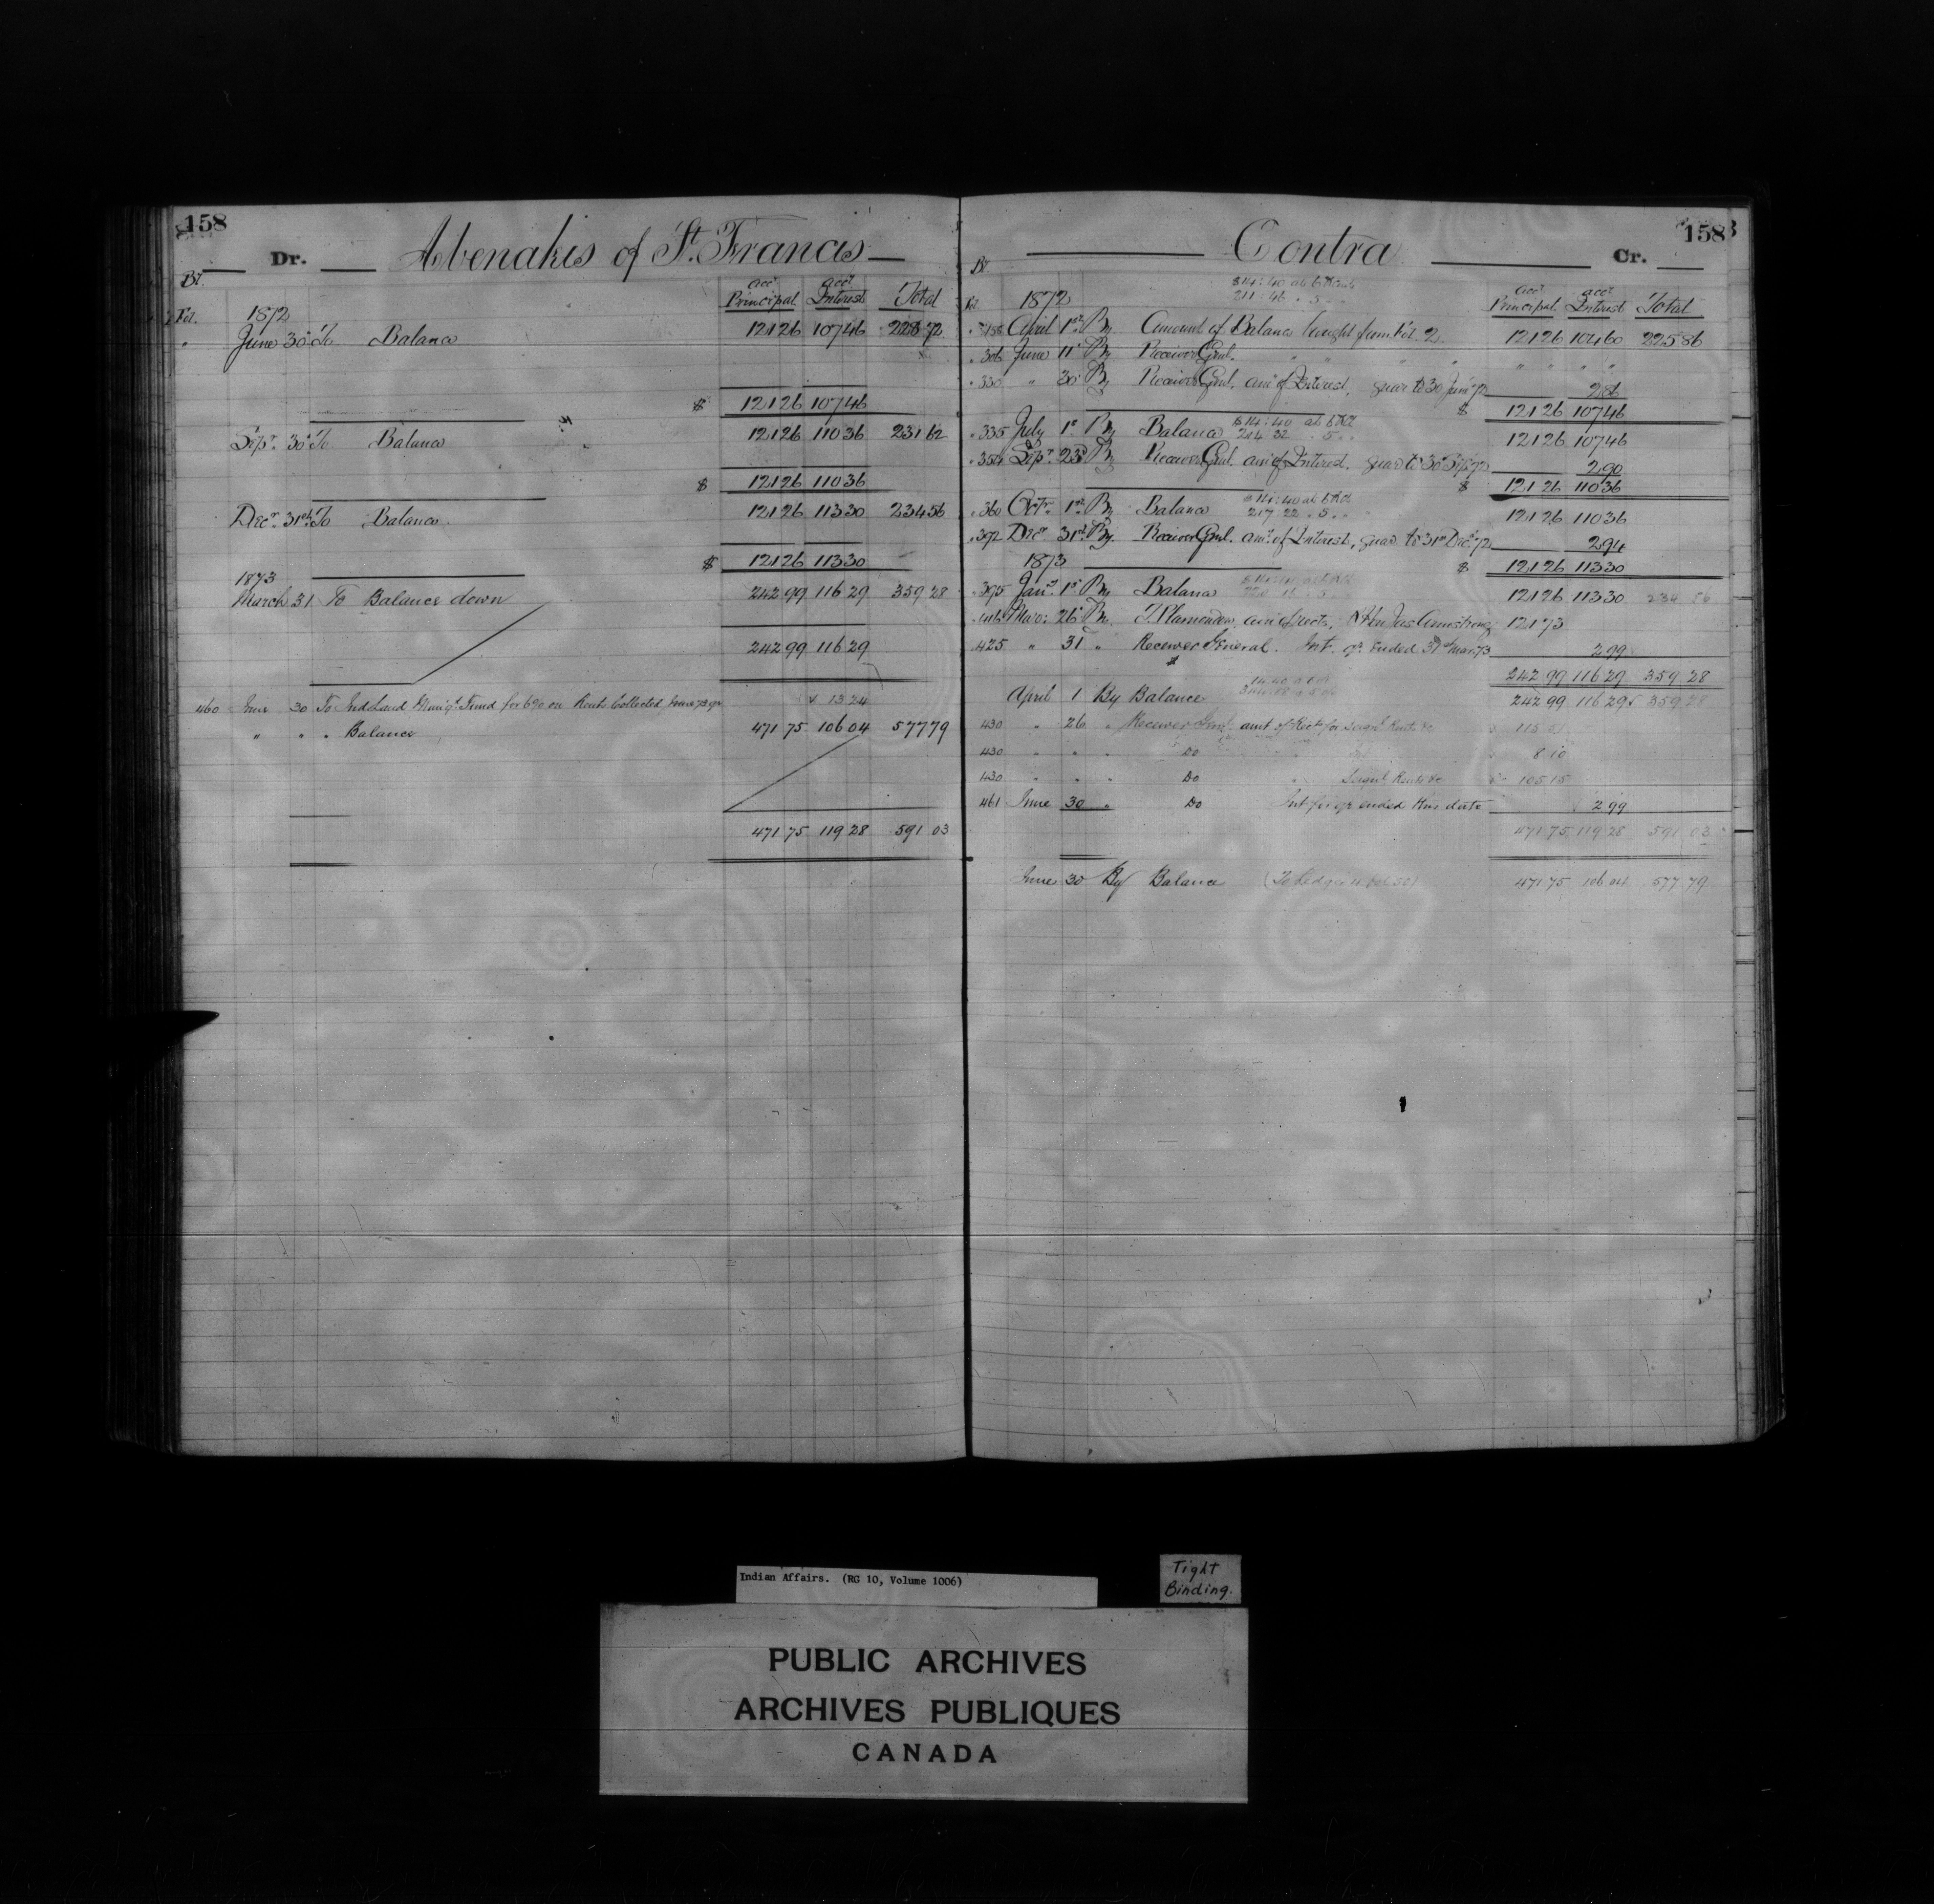 158
Dr. Abenakis of St. Francis
Bl. Fol.
acct Principal acct Interest Total
1872
" June 30 To Balance 121 26 107 46 228 72
$ 121 26 107 46
Sepr. 30 To Balance 121 26 110 36 231 62
$ 121 26 110 36
Decr. 31st To Balance 121 26 113 30 234 56
$ 121 26 113 30
1873
March 31 To Balance down 242 99 116 29 359 28
242 99 116 29
460 June 30 To Ind Land Managt Fund for 6% on Rents Collected June 73 qr 13 24
" " " Balance 471 75 106 04 577 79
471 75 119 28 591 03
158
Contra Cr.
Bl.
acct Principal acct Interest Total
1872 $14:40 at 6 % Cent
211:46 " 5 " "
" 158 April 1st By Amount of Balance brought from Fol. 2. 121 26 104 60 225 86
" 306 June 11 By Receiver Genl. " " " " " " " "
" 330 " 30 By Receiver Genl. amt of Interest, quar to 30 June 72 2 86
$ 121 26 107 46
" 335 July 1st By Balance $14:40 at 6 % Ct 121 26 107 46
214 32 " 5 " "
" 354 Sepr. 23d By Receiver Genl. amt of Interest, quar to 30 Sept 72 2 90
$ 121 26 110 36
" 360 Octr. 1st By Balance $14:40 at 6 % Ct 121 26 110 36
217 22 " 5 " "
" 392 Decr 31st By Receiver Genl. amt of Interest, quar to 31st Decr 72 2 94
1873 $ 121 26 113 30
" 395 Jany. 1st By Balance 121 26 113 30 234 56
" 416 Mar: 26 By T. Plamondon, amt of rects, Hon Jas Armstrong 121 73
425 " 31 " Receiver General. Int. qr. ended 31st Mar. 73 2 99
242 99 116 29 359 28
April 1 By Balance 14.40 a 6 % 242 99 116 29 359 28
344.88 a 5 %
430 " 26 " Receiver Genl. amt of Rect for Seignl Rents &c 115 51
430 " " " Do Int 8 10
430 " " " Do " Seignl Rents &c 105 15
461 June 30 " Do Int for qr ended this date 2 99
471 75 119 28 591 03
June 30 By Balance (To Ledger 4 fol 50) 471 75 106 04 577 79
Indian Affairs. (RG 10, Volume 1006)
Tight
Binding.
PUBLIC ARCHIVES
ARCHIVES PUBLIQUES
CANADA